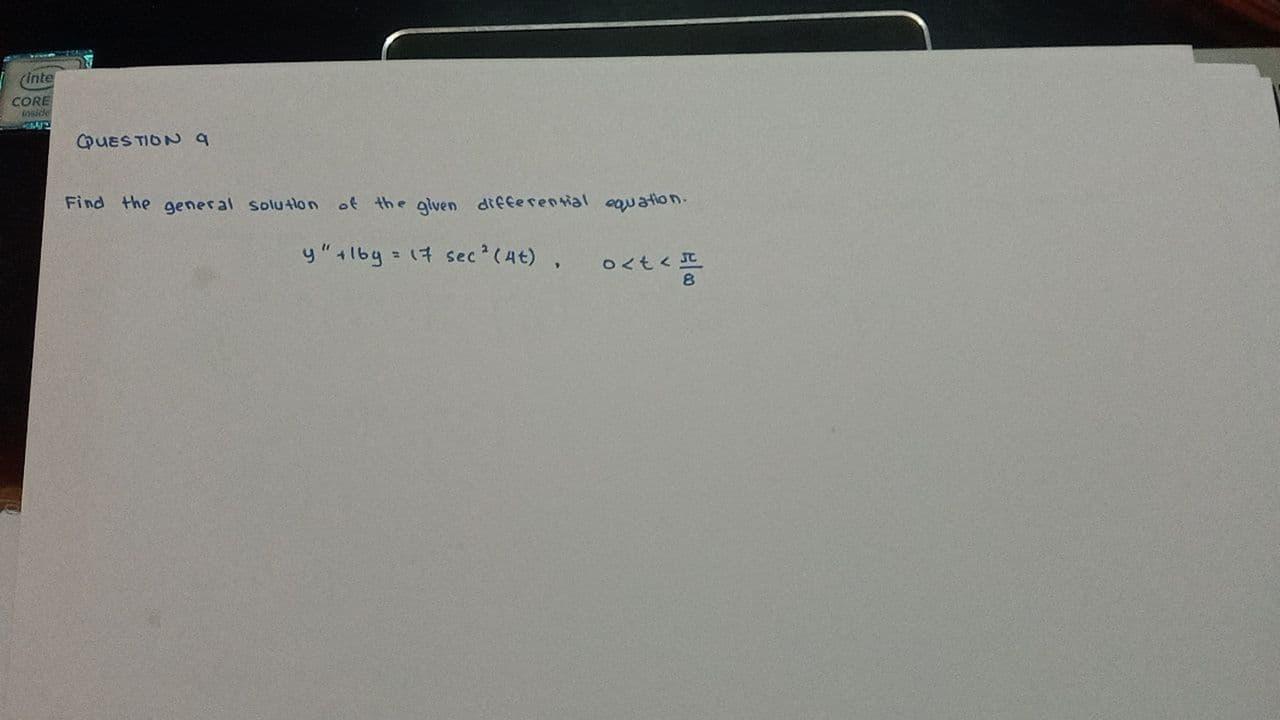 intel
CORE
inside
QUESTION 9
Find the general solution of the given differential equation.
y" + 16y = 17 sec² (4t) , 0 < t < π/8